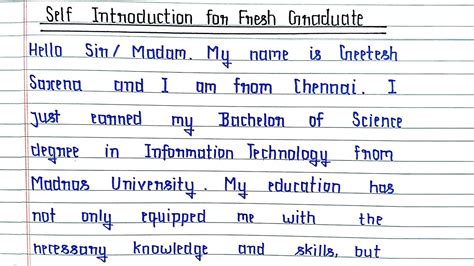 Self Introduction for Fresh Graduate
Hello Sir/ Madam. My name is Geetesh
Saxena and I am from Chennai. I
just earned my Bachelor of Science
degree in Information Technology from
Madras University. My education has
not only equipped me with the
necessary knowledge and skills, but